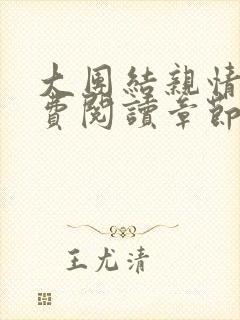 大团結親情
費閱讀章節
王尤清